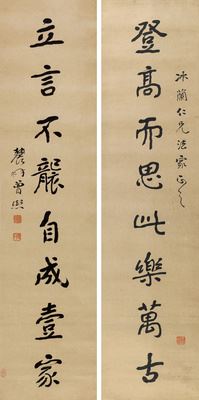 冰蘭仁兄法家正之
登高而思此樂萬古
立言不襲自成壹家
農髯曾熙